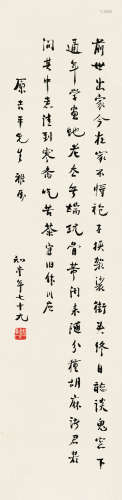 前世出家今在家不將袍子換袈裟街頭終日聽談鬼窗下
通年學畫蛇老去無端玩骨董閒來隨分種胡麻君若
問其中意到寒齋吃苦茶舊作以應
原吉平先生雅屬
知堂年七十九